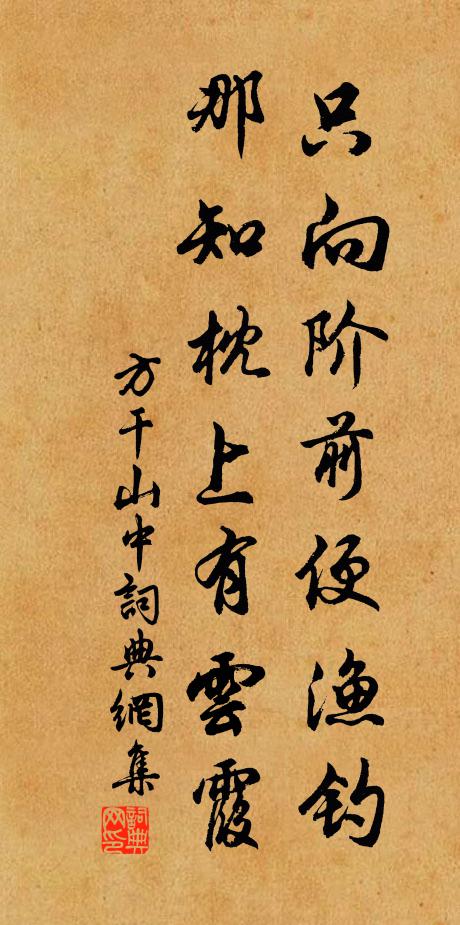 只向阶前便渔钓
那知枕上有雲霞
方干山中詞典網集
詞典网印